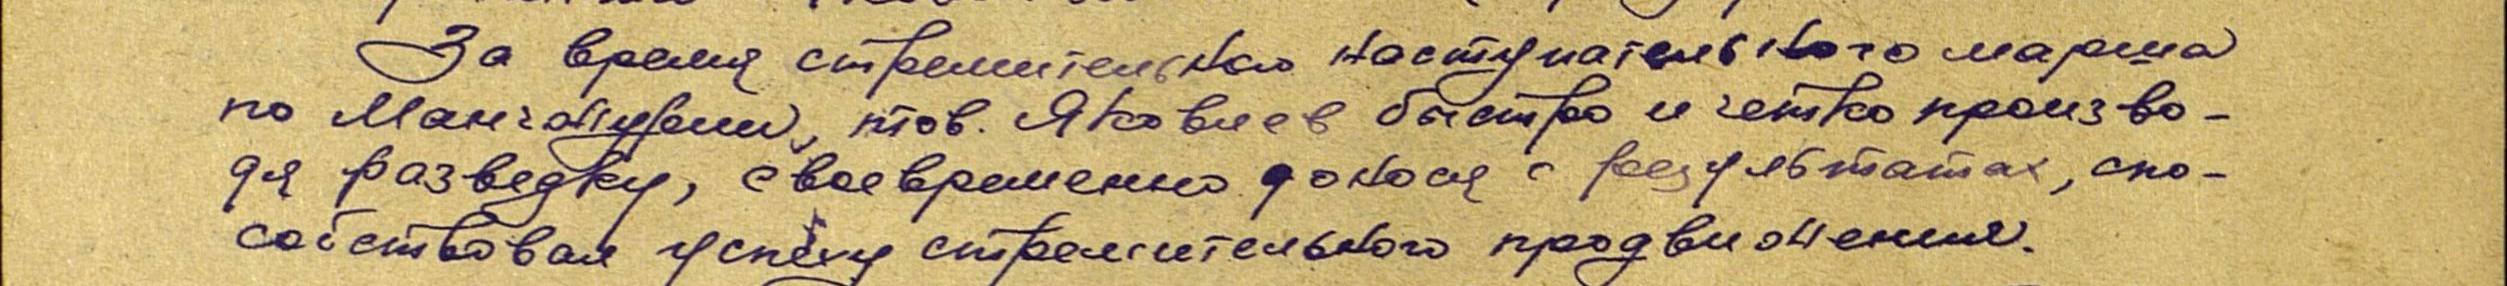 За время стремительного наступательного марша
по Манчжурии, тов. Яковлев быстро и четко произво-
дя разведку, своевременно донося о результатах, спо-
собствовал успеху стремительного продвижения.